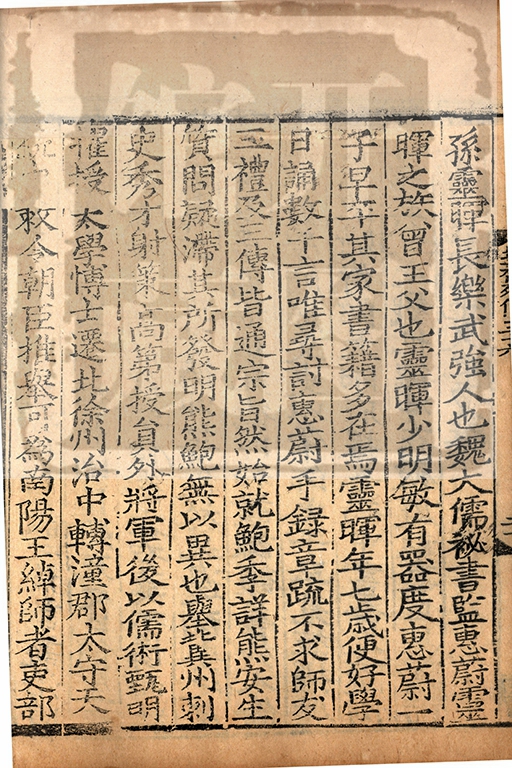 孫靈暉長樂武強人也魏大儒祕書監惠蔚靈
暉之族曾王父也靈暉少明敏有器度惠蔚一
子早卒其家書籍多在焉靈暉年七歲便好學
日誦數千言唯尋討惠蔚手錄章疏不求師友
三禮及三傳皆通宗旨然始就鮑季詳熊安生
質問疑滯其所發明熊鮑無以異也舉冀州刺
史秀才射策高第授員外將軍後以儒術甄明
擢授太學博士遷北徐州治中轉潼郡太守天
敕令朝臣推舉可為南陽王綽師者吏部